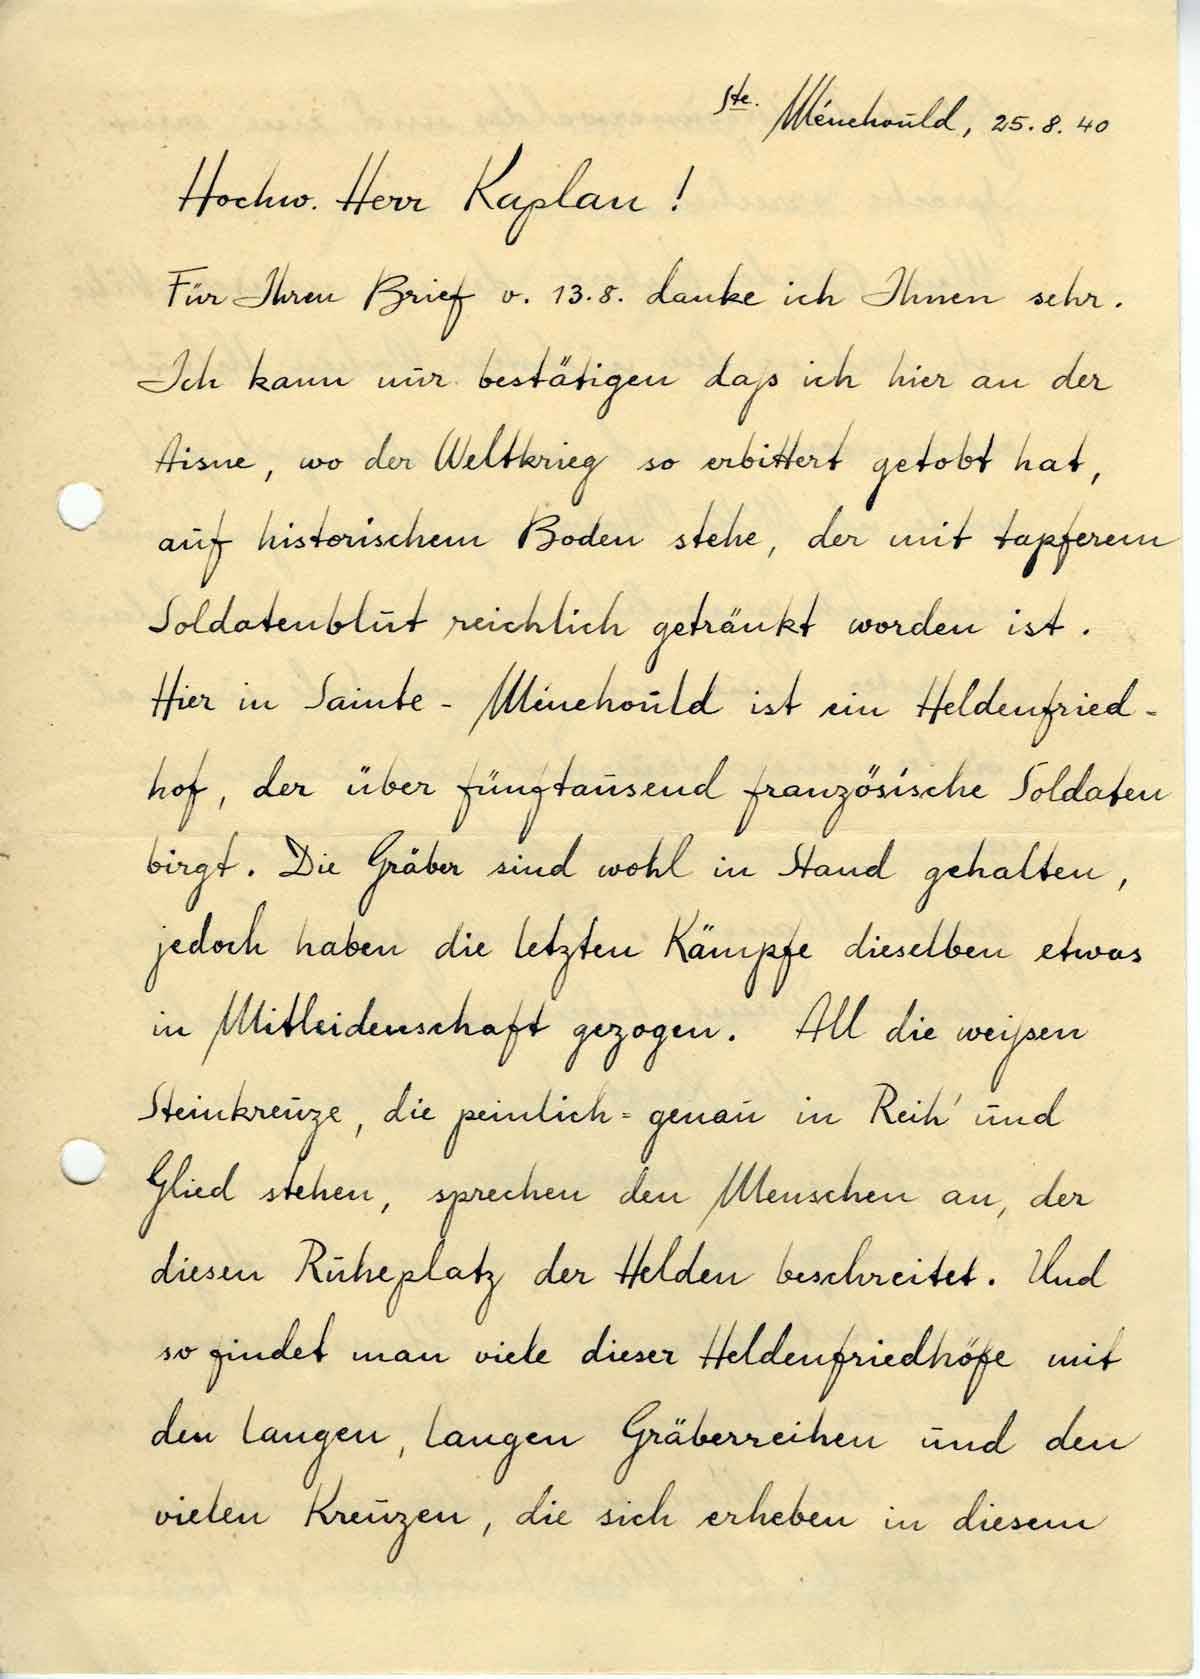 Ste. Ménehould, 25.8.40
Hochw. Herr Kaplan!
Für Ihren Brief v. 13.8. danke ich Ihnen sehr.
Ich kann nur bestätigen daß ich hier an der
Aisne, wo der Weltkrieg so erbittert getobt hat,
auf historischem Boden stehe, der mit tapferem
Soldatenblut reichlich getränkt worden ist.
Hier in Sainte-Ménehould ist ein Heldenfried-
hof, der über fünftausend französische Soldaten
birgt. Die Gräber sind wohl in Stand gehalten,
jedoch haben die letzten Kämpfe dieselben etwas
in Mitleidenschaft gezogen. All die weißen
Steinkreuze, die peinlich=genau in Reih' und
Glied stehen, sprechen den Menschen an, der
diesen Ruheplatz der Helden beschreitet. Und
so findet man viele dieser Heldenfriedhöfe mit
den langen, langen Gräberreihen und den
vielen Kreuzen, die sich erheben in diesem